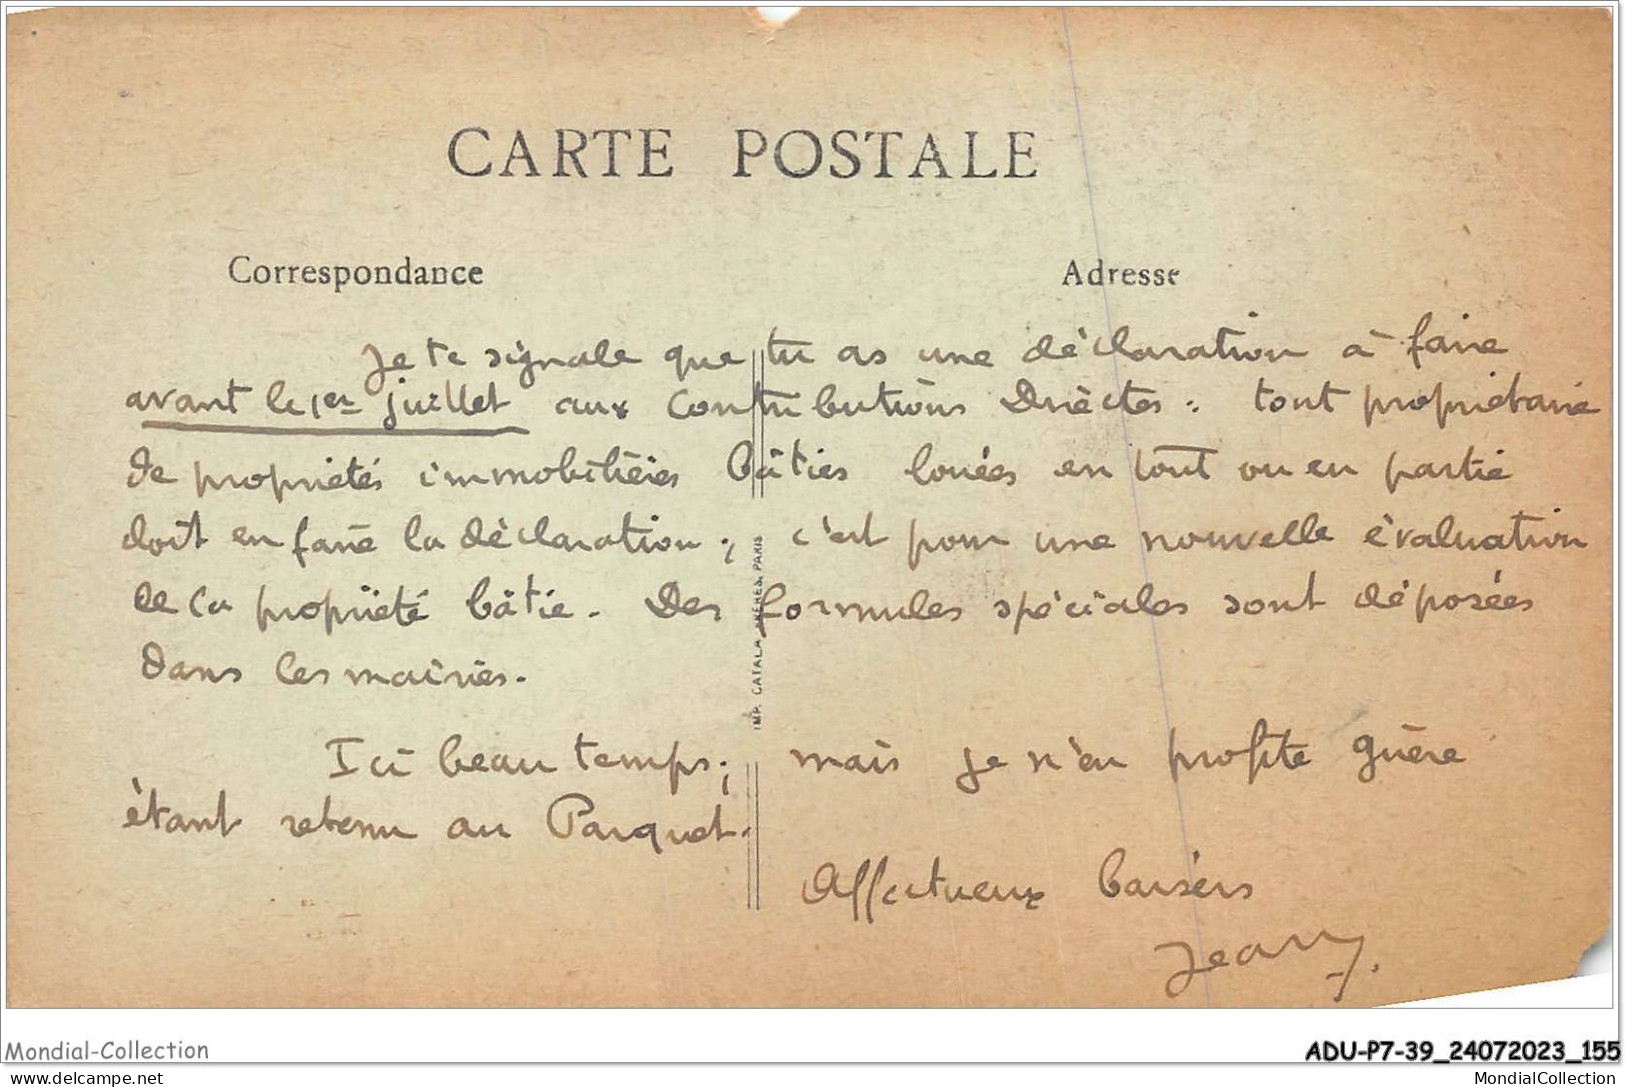 CARTE POSTALE
Correspondance
Adresse
Je te signale que tu as une déclaration à faire
avant le 1er juillet aux Contributions Directes : tout propriétaire
de propriétés immobilières bâties louées en tout ou en partie
doit en faire la déclaration ; c'est pour une nouvelle évaluation
de la propriété bâtie. Des formules spéciales sont déposées
dans les mairies.
Ici beau temps ; mais je n'en profite guère
étant retenu au Parquet.
Affectueux baisers
Jean
IMP. CATALA FRÈRES, PARIS
Mondial-Collection
ADU-P7-39_24072023_155
www.delcampe.net
MondialCollection